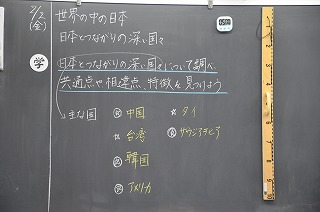 2/2
(金)
世界の中の日本
日本とつながりの深い国々
学
日本とつながりの深い国々について調べ、
共通点や相違点、特徴を見つけよう
主な国
中国
台湾
韓国
アメリカ
タイ
サウジアラビア